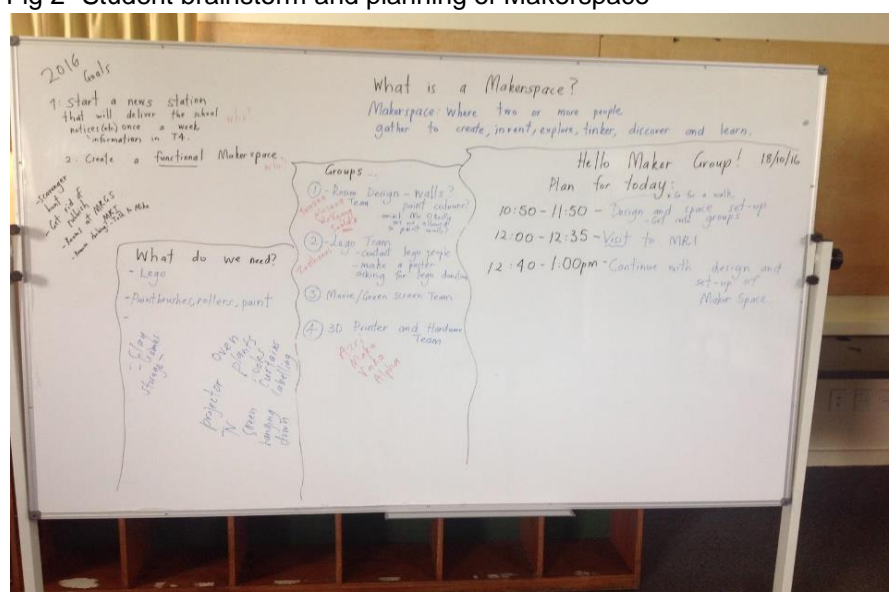 Fig 2- Student brainstorm and planning of Makerspace
2016
Goals
1. Start a news station
that will deliver the school
notices once a week
information in T4.
2. Create a functional Makerspace
-Scavenger
hunt
- Get rid of
rubbish
What do we need?
- Lego
- Paintbrushes, rollers, paint
-
- Clay
storage
oven
plants
curtains
labelling
projector
TV
screen
hanging
down
What is a Makerspace?
Makerspace: Where two or more people
gather to create, invent, explore, tinker, discover and learn.
Groups
① - Room Design - walls?
Team paint colour?
② - Lego Team
- contact lego people
- make a poster
asking for lego
③ Movie/Green Screen Team
④ 3D Printer and Hardware
Team
Hello Maker Group! 18/10/16
Plan for today:
Go for a walk
10:50 - 11:50 - Design and space set-up
groups
12:00 - 12:35 - Visit to MRI
12:40 - 1:00pm - Continue with design and
set-up of
Maker Space